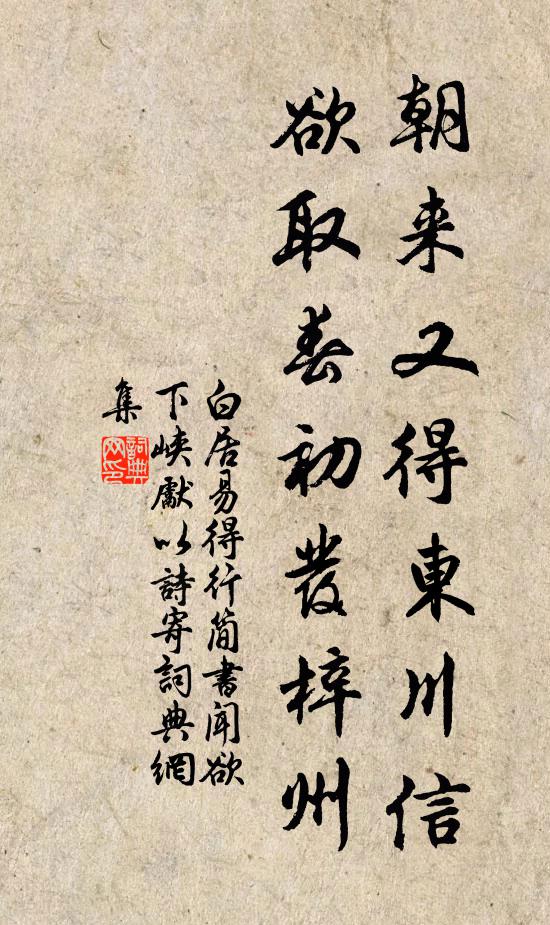 朝来又得東川信
欲取春初發梓州
白居易得行简書聞欲
下峽獻以詩寄詞典網
集
詞典
网印